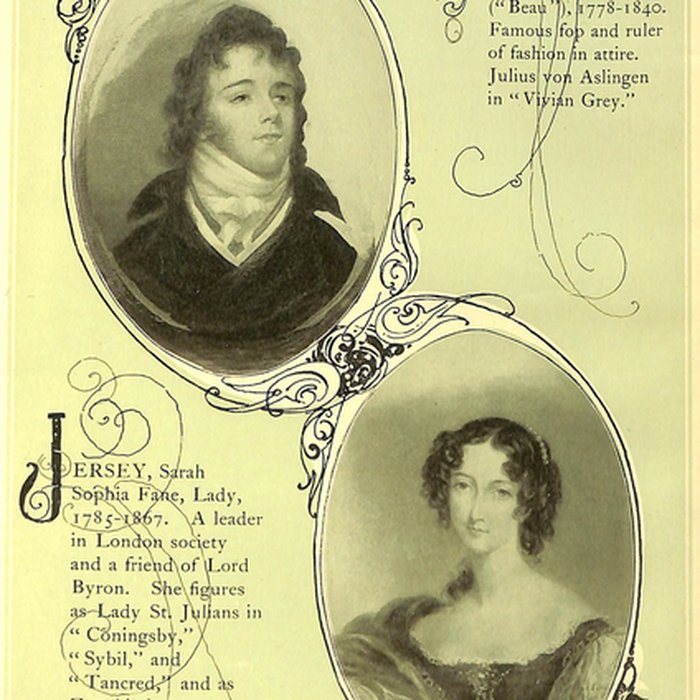 ("Beau"), 1778-1840.
Famous fop and ruler
of fashion in attire.
Julius von Aslingen
in "Vivian Grey."
JERSEY, Sarah
Sophia Fane, Lady,
1785-1867. A leader
in London society
and a friend of Lord
Byron. She figures
as Lady St. Julians in
"Coningsby,"
"Sybil," and
"Tancred," and as